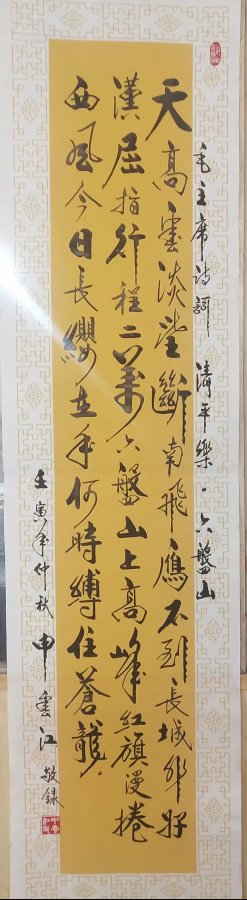 毛主席诗詞 清平樂·六盤山
天高雲淡望斷南飛鴈不到長城非好
漢屈指行程二萬六盤山上高峰紅旗漫捲
西風今日長纓在手何時縛住蒼龍
壬寅年仲秋申雲江敬録